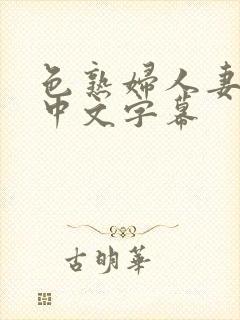 色熟婦人妻
中文字幕
古明華